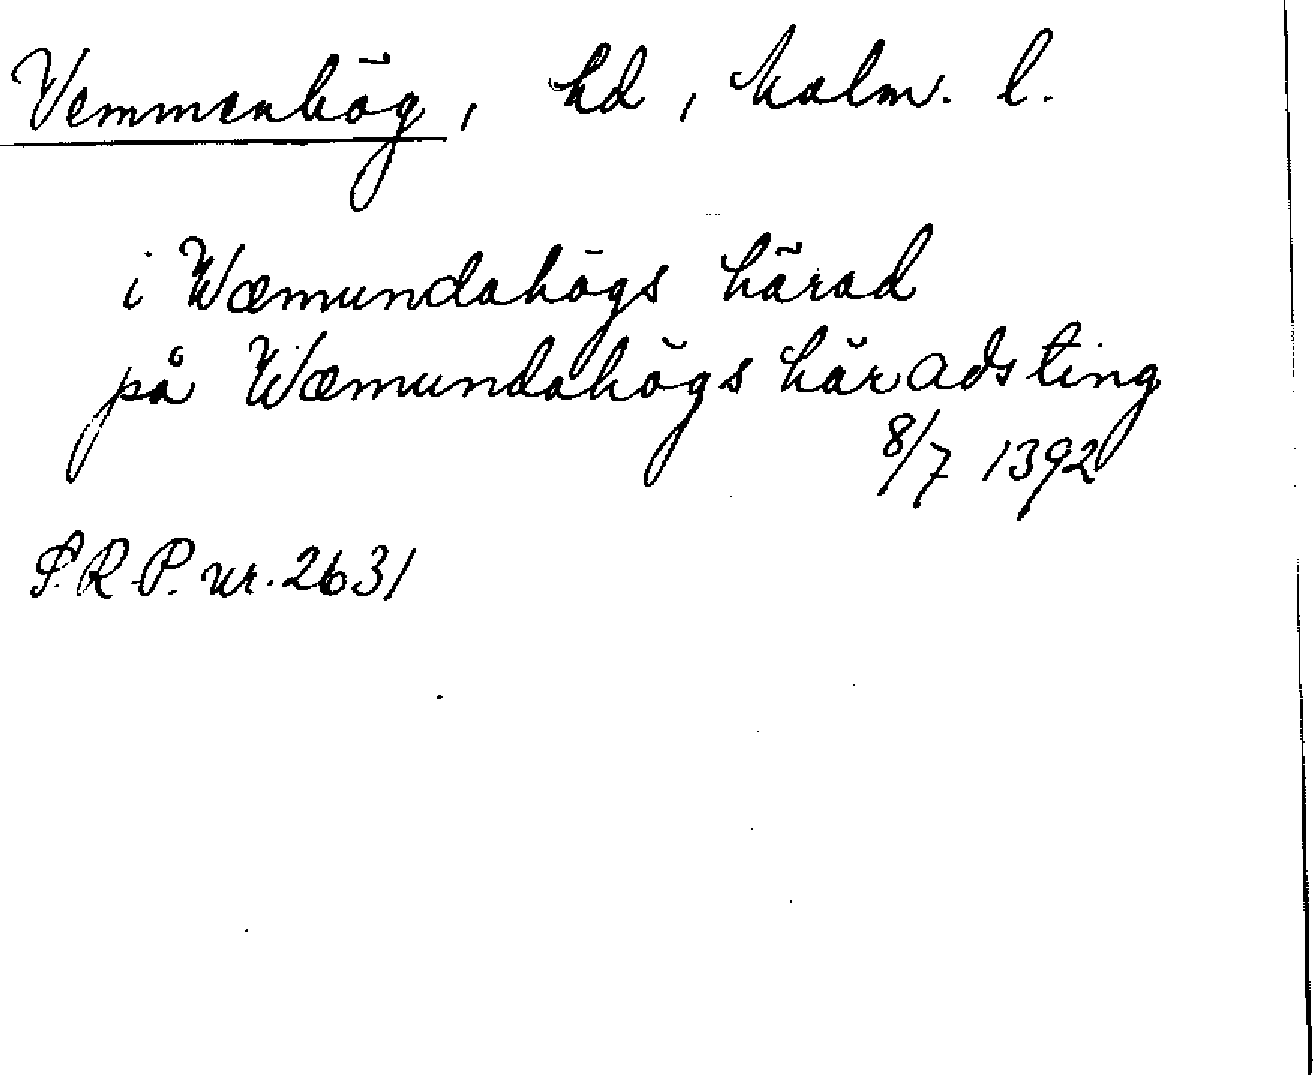 Vemmenhög, hd, Malm. l.
i Wæmundahögs härad
på Wæmundahögs häradsting
8/7 1392
S.R.P. nr. 2631